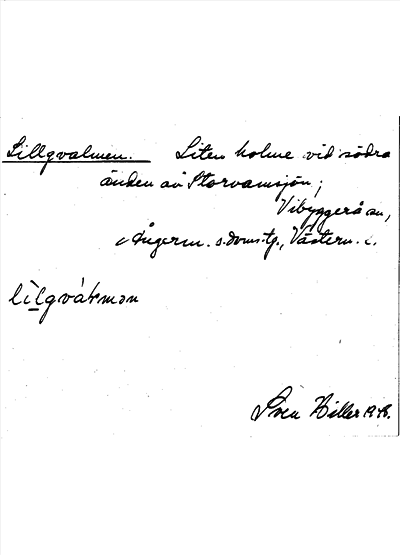 Lillgvalmen. Liten holme vid södra
änden av Storvamsjön;
Vibyggerå sn,
Ångerm. s. doms.tg., Västern. l.
lìlgvál mən
Sven Hiller